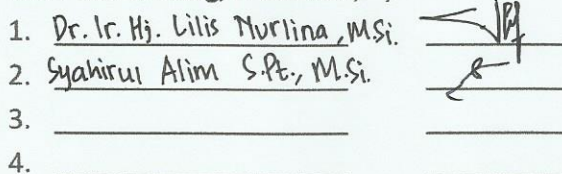 1. Dr. Ir. Hj. Lilis Nurlina, M.Si.
2. Syahirul Alim S.Pt., M.Si.
3.
4.